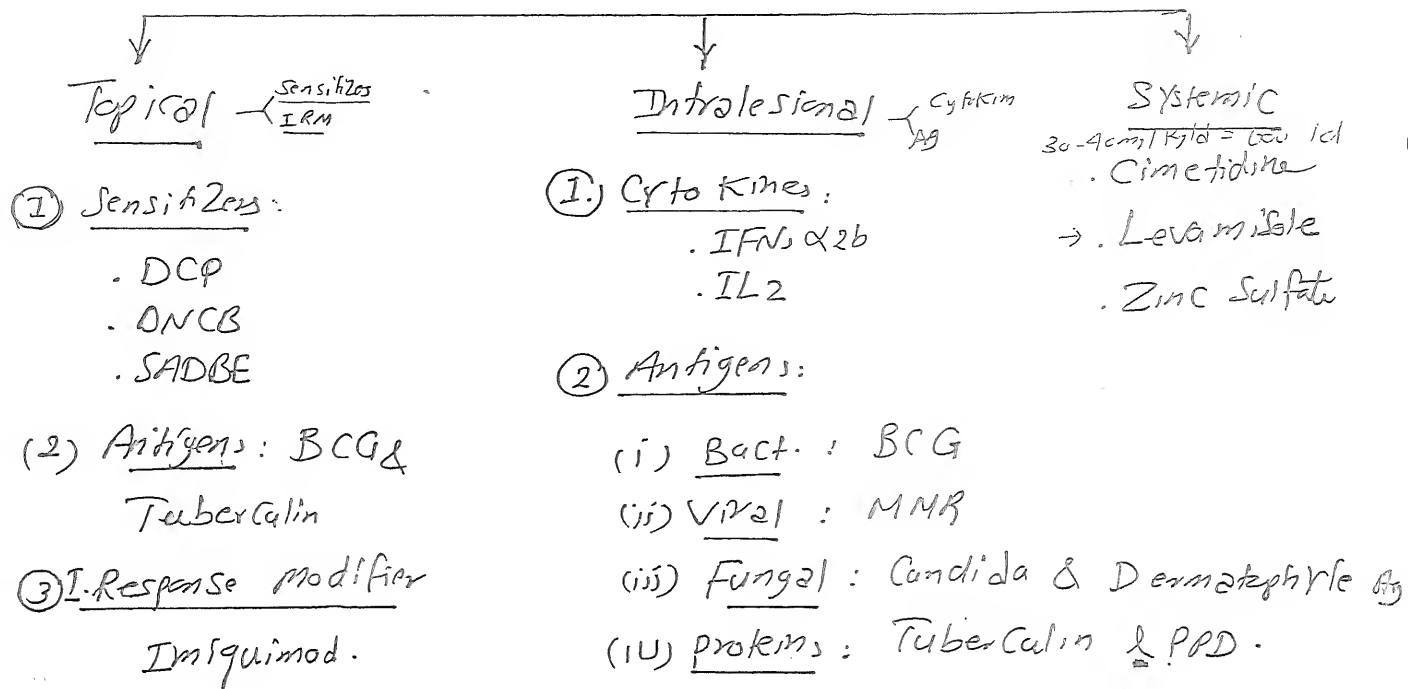 Topical Sensitizos
IRM
① Sensitizers:
. DCP
. DNCB
. SADBE
(2) Antigens: BCG &
Tubercalin
③ I. Response modifier
Imiquimod.
Intralesional Cytokim
Ag
①. Cyto Kines:
. IFNs α2b
. IL2
② Antigens:
(i) Bact. : BCG
(ii) Viral : MMR
(iii) Fungal : Candida & Dermatophyte Ag
(iv) proteins : Tubercalin & PPD.
Systemic
30-40mg/Kg/d =
. Cimetidine
→ . Levamisole
. Zinc Sulfate